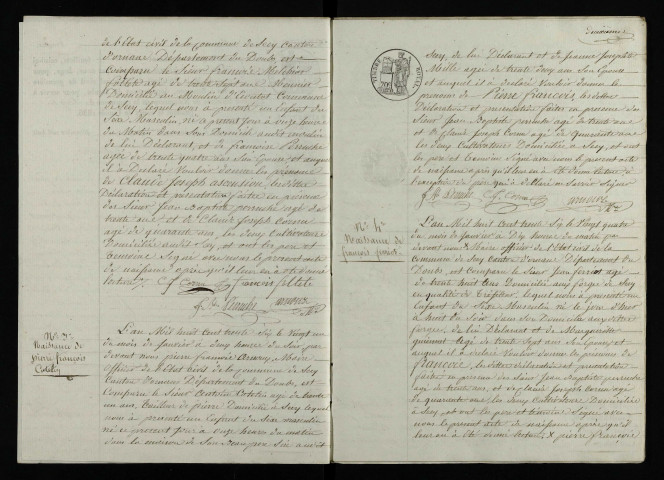 de l'état civil de la commune de Scey Canton
d'ornans Département du Doubs, est
Comparu le Sieur françois Melchior
agé de trente sept ans Meunier
Domicilié au Moulin Commune
de Scey, lequel nous a présenté un Enfant du
Sexe Masculin, né à present jour à onze heures
du Matin dans son Domicile audit moulin
de lui Déclarant, et de françoise
agée de trente quatre ans Son Epouse et auquel
il a Déclaré Vouloir donner les prénoms
de Claude Joseph ascension, lesdittes
Déclaration et présentation faites en présence
du Sieur Jean Baptiste perruche agé de
trente ans et de Claude Joseph Cornu
agé de quarante ans, les deux Cultivateurs
Domiciliés audit Scey, et ont les père et
témoins Signé avec nous le présent acte
de naissance après qu'il leur en a été donné
lecture. Cf Cornu françois
N.° 3.
Naissance de
pierre françois
Coteley
L'an Mil huit cent trente Six le vingt un
du mois de janvier à deux heures du Soir par
devant nous pierre françois Maire
officier de l'Etat civil de la commune de Scey
Canton d'ornans Département du Doubs, est
Comparu le Sieur agé de trente
un ans, tailleur de pierre Domicilié à Scey lequel
nous a présenté un Enfant du Sexe masculin
né ce present jour à onze heures du matin
dans la maison de Son beau père Sise audit
Deuxième
TIMBRE ROYAL
Scey, de lui Déclarant et de jeanne Josephte
agée de trente ans Son Epouse
et auquel il a déclaré Vouloir donner les
prénoms de Pierre François, lesdittes
Déclaration et présentation faites en présence du
Sieur Jean Baptiste perruche agé de trente ans
et de Claude Joseph Cornu agé de quarante ans
les deux Cultivateurs Domiciliés à Scey, et ont
les père et témoins Signé avec nous le présent acte
de naissance après qu'il leur en a été donné lecture à
l'exception du père qui a déclaré ne Savoir Signer
Cf Cornu
N.° 4.
Naissance de
françois
L'an Mil huit cent trente Six le vingt quatre
du mois de janvier à dix heures du matin par
devant nous Maire officier de l'Etat civil de la
Commune de Scey Canton d'ornans Département du
Doubs, est Comparu le Sieur Jean agé
de trente huit ans Domicilié aux forges de Scey
en qualité de tréfileur, lequel nous a présenté un
Enfant du Sexe Masculin né le jour d'hier
à huit du Soir dans Son Domicile auxdittes
forges, de lui Déclarant et de Marguerite
agée de trente Sept ans Son Epouse et
auquel il a déclaré Vouloir donner le prénom de
François, lesdittes déclaration et présentation
faites en présence du Sieur Jean Baptiste perruche
agé de trente ans, et de Claude Joseph Cornu agé
de quarante ans les deux Cultivateurs Domiciliés
à Scey, et ont les père et témoins Signé avec
nous le présent acte de naissance après qu'il
leur en a été donné lecture, pierre françois